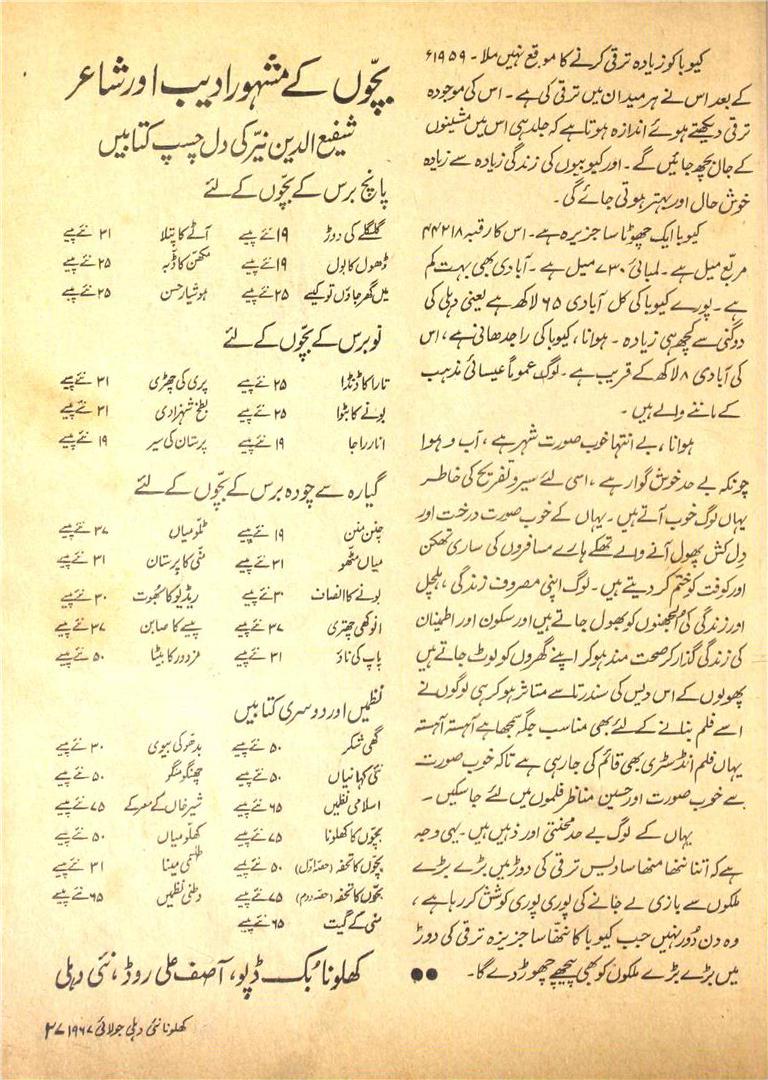 کیوبا کو زیادہ ترقی کرنے کا موقع نہیں ملا۔ ۱۹۵۹ء
کے بعد اس نے ہر میدان میں ترقی کی ہے۔ اس کی موجودہ
ترقی دیکھتے ہوئے اندازہ ہوتا ہے کہ جلد ہی اس میں مشینوں
کے جال بچھ جائیں گے۔ اور کیوبیوں کی زندگی زیادہ سے زیادہ
خوش حال اور بہتر ہوتی جائے گی۔
کیوبا ایک چھوٹا سا جزیرہ ہے۔ اس کا رقبہ ۴۴۲۱۸
مربّع میل ہے۔ لمبائی ۷۳۰ میل ہے۔ آبادی بھی بہت کم
ہے۔ پورے کیوبا کی کل آبادی ۶۵ لاکھ ہے یعنی دہلی کی
دوگنی سے کچھ ہی زیادہ۔ ہوانا، کیوبا کی راجدھانی ہے، اس
کی آبادی ۸ لاکھ کے قریب ہے۔ لوگ عموماً عیسائی مذہب
کے ماننے والے ہیں۔
ہوانا، بے انتہا خوب صورت شہر ہے، آب و ہوا
چونکہ بے حد خوش گوار ہے، اسی لئے سیر و تفریح کی خاطر
یہاں لوگ خوب آتے ہیں۔ یہاں کے خوب صورت درخت اور
دِل کش پھول آنے والے تھکے ہارے مسافروں کی ساری تھکن
اور کوفت کو ختم کر دیتے ہیں۔ لوگ اپنی مصروف زندگی، ہلچل
اور زندگی کی اُلجھنوں کو بھول جاتے ہیں اور سکون اور اطمینان
کی زندگی گذار کر صحت مند ہو کر اپنے گھروں کو لوٹ جاتے ہیں
پھولوں کے اس دیس کی سندرتا سے متاثر ہو کر ہی لوگوں نے
اسے فلم بنانے کے لئے بھی مناسب جگہ سمجھا ہے آہستہ آہستہ
یہاں فلم انڈسٹری بھی قائم کی جا رہی ہے تاکہ خوب صورت
سے خوب صورت اور حسین مناظر فلموں میں لئے جا سکیں۔
یہاں کے لوگ بے حد محنتی اور ذہین ہیں۔ یہی وجہ
ہے کہ اتنا ننھا منھا سا دیس ترقی کی دوڑ میں بڑے بڑے
ملکوں سے بازی لے جانے کی پوری پوری کوشش کر رہا ہے،
وہ دن دُور نہیں جب کیوبا کا ننھا سا جزیرہ ترقی کی دوڑ
میں بڑے بڑے ملکوں کو بھی پیچھے چھوڑ دے گا۔ ●●
بچّوں کے مشہور ادیب اور شاعر
شفیع الدین نیّر کی دل چسپ کتابیں
پانچ برس کے بچّوں کے لئے
گلگلے کی دوڑ ۱۹ نئے پیسے آٹے کا پتلا ۳۱ نئے پیسے
ڈھول کا پول ۱۹ نئے پیسے مکھن کا ڈبہ ۲۵ نئے پیسے
میں گھر جاؤں تو کیسے ۲۵ نئے پیسے ہوشیار حسن ۲۵ نئے پیسے
نو برس کے بچّوں کے لئے
تارا کا ڈنڈا ۲۵ نئے پیسے پری کی چھڑی ۳۱ نئے پیسے
بونے کا بٹوا ۲۵ نئے پیسے بطخ شہزادی ۳۱ نئے پیسے
انار راجا ۱۹ نئے پیسے پرستان کی سیر ۱۹ نئے پیسے
گیارہ سے چودہ برس کے بچّوں کے لئے
چنن منن ۱۹ نئے پیسے ٹلّو میاں ۳۷ نئے پیسے
میاں مٹھو ۳۱ نئے پیسے منّی کا پرستان ۳۱ نئے پیسے
بونے کا انصاف ۳۰ نئے پیسے ریڈیو کا بھوت ۳۰ نئے پیسے
انوکھی چھتری ۳۷ نئے پیسے پیسے کا صابن ۳۷ نئے پیسے
پاپ کی ناؤ ۳۱ نئے پیسے مزدور کا بیٹا ۵۰ نئے پیسے
نظمیں اور دوسری کتابیں
گھی شکر ۵۰ نئے پیسے بدھو کی بیوی ۳۰ نئے پیسے
نئی کہانیاں ۵۰ نئے پیسے چھنگو منگو ۵۰ نئے پیسے
اسلامی نظمیں ۶۵ نئے پیسے شیر خاں کے معرکے ۷۵ نئے پیسے
بچّوں کا کھلونا ۷۵ نئے پیسے کھلّو میاں ۵۰ نئے پیسے
بچّوں کا تحفہ (حصّہ اوّل) ۵۰ نئے پیسے طلسمی مینا ۳۱ نئے پیسے
بچّوں کا تحفہ (حصّہ دوم) ۷۵ نئے پیسے وطنی نظمیں ۶۵ نئے پیسے
منی کے گیت ۶۵ نئے پیسے
کھلونا بُک ڈپو، آصف علی روڈ، نئی دہلی
کھلونا نئی دہلی جولائی ۱۹۶۷ ۲۷